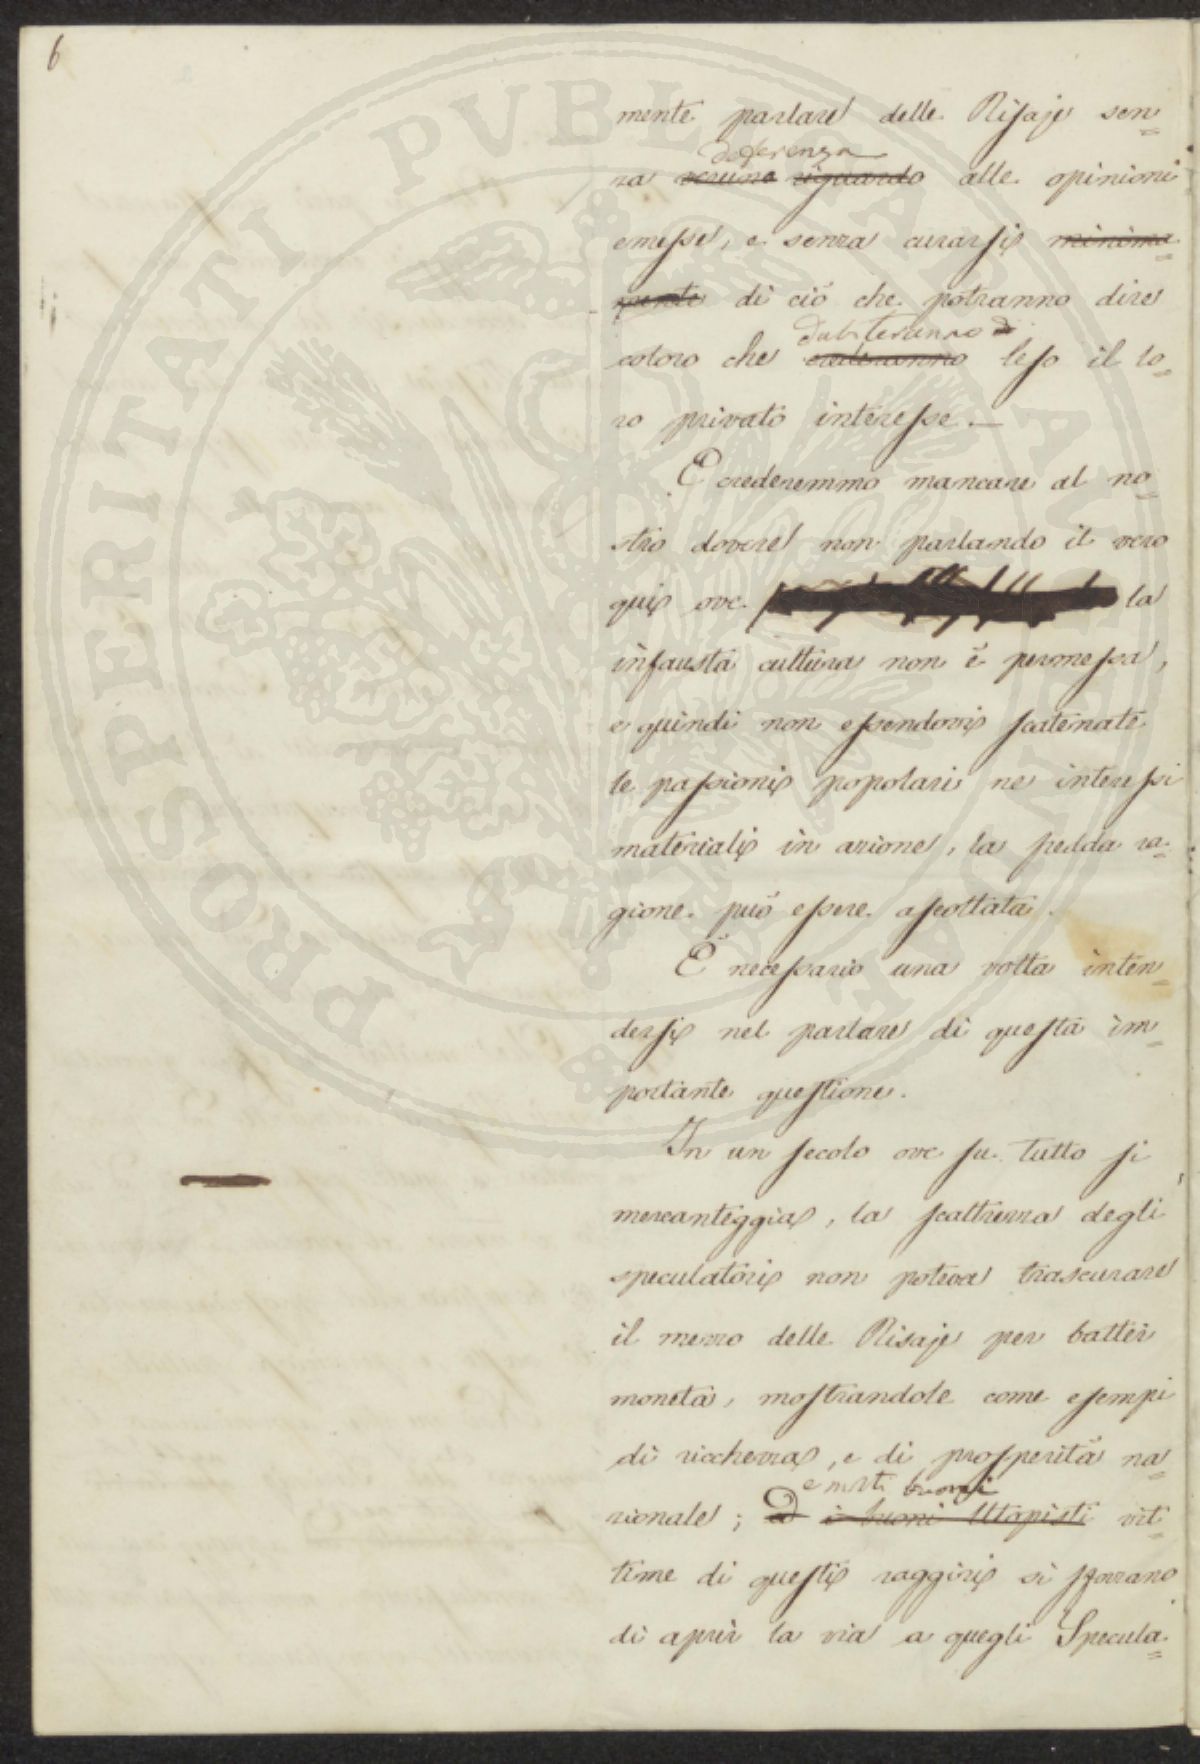 6
PROSPERITATI PVBLICAE AVGENDAE
mente parlare delle Risaje sen=
deferenza
za veruno riguardo alle opinioni
emesse, e senza curarsi minima=
mente di ciò che potranno dire
dubiteranno di
coloro che crederanno leso il lo=
ro privato interesse. —
E crederemmo mancare al no=
stro dovere non parlando il vero
qui ove la
infausta cultura non è permessa,
e quindi non essendovi scatenate
le passioni popolari ne interessi
materiali in azione, la fredda ra=
gione può essere ascoltata.
È necessario una volta inten=
dersi nel parlare di questa im=
portante questione.
In un secolo ove su tutto si
mercanteggia, la scaltrezza degli
speculatori non poteva trascurare
il mezzo delle Risaje per batter
moneta, mostrandole come esempi
di ricchezza, e di prosperità na=
e molti buoni
zionale; Ed i buoni Utopisti vit=
time di questi raggiri si sforzano
di aprir la via a quegli Specula=